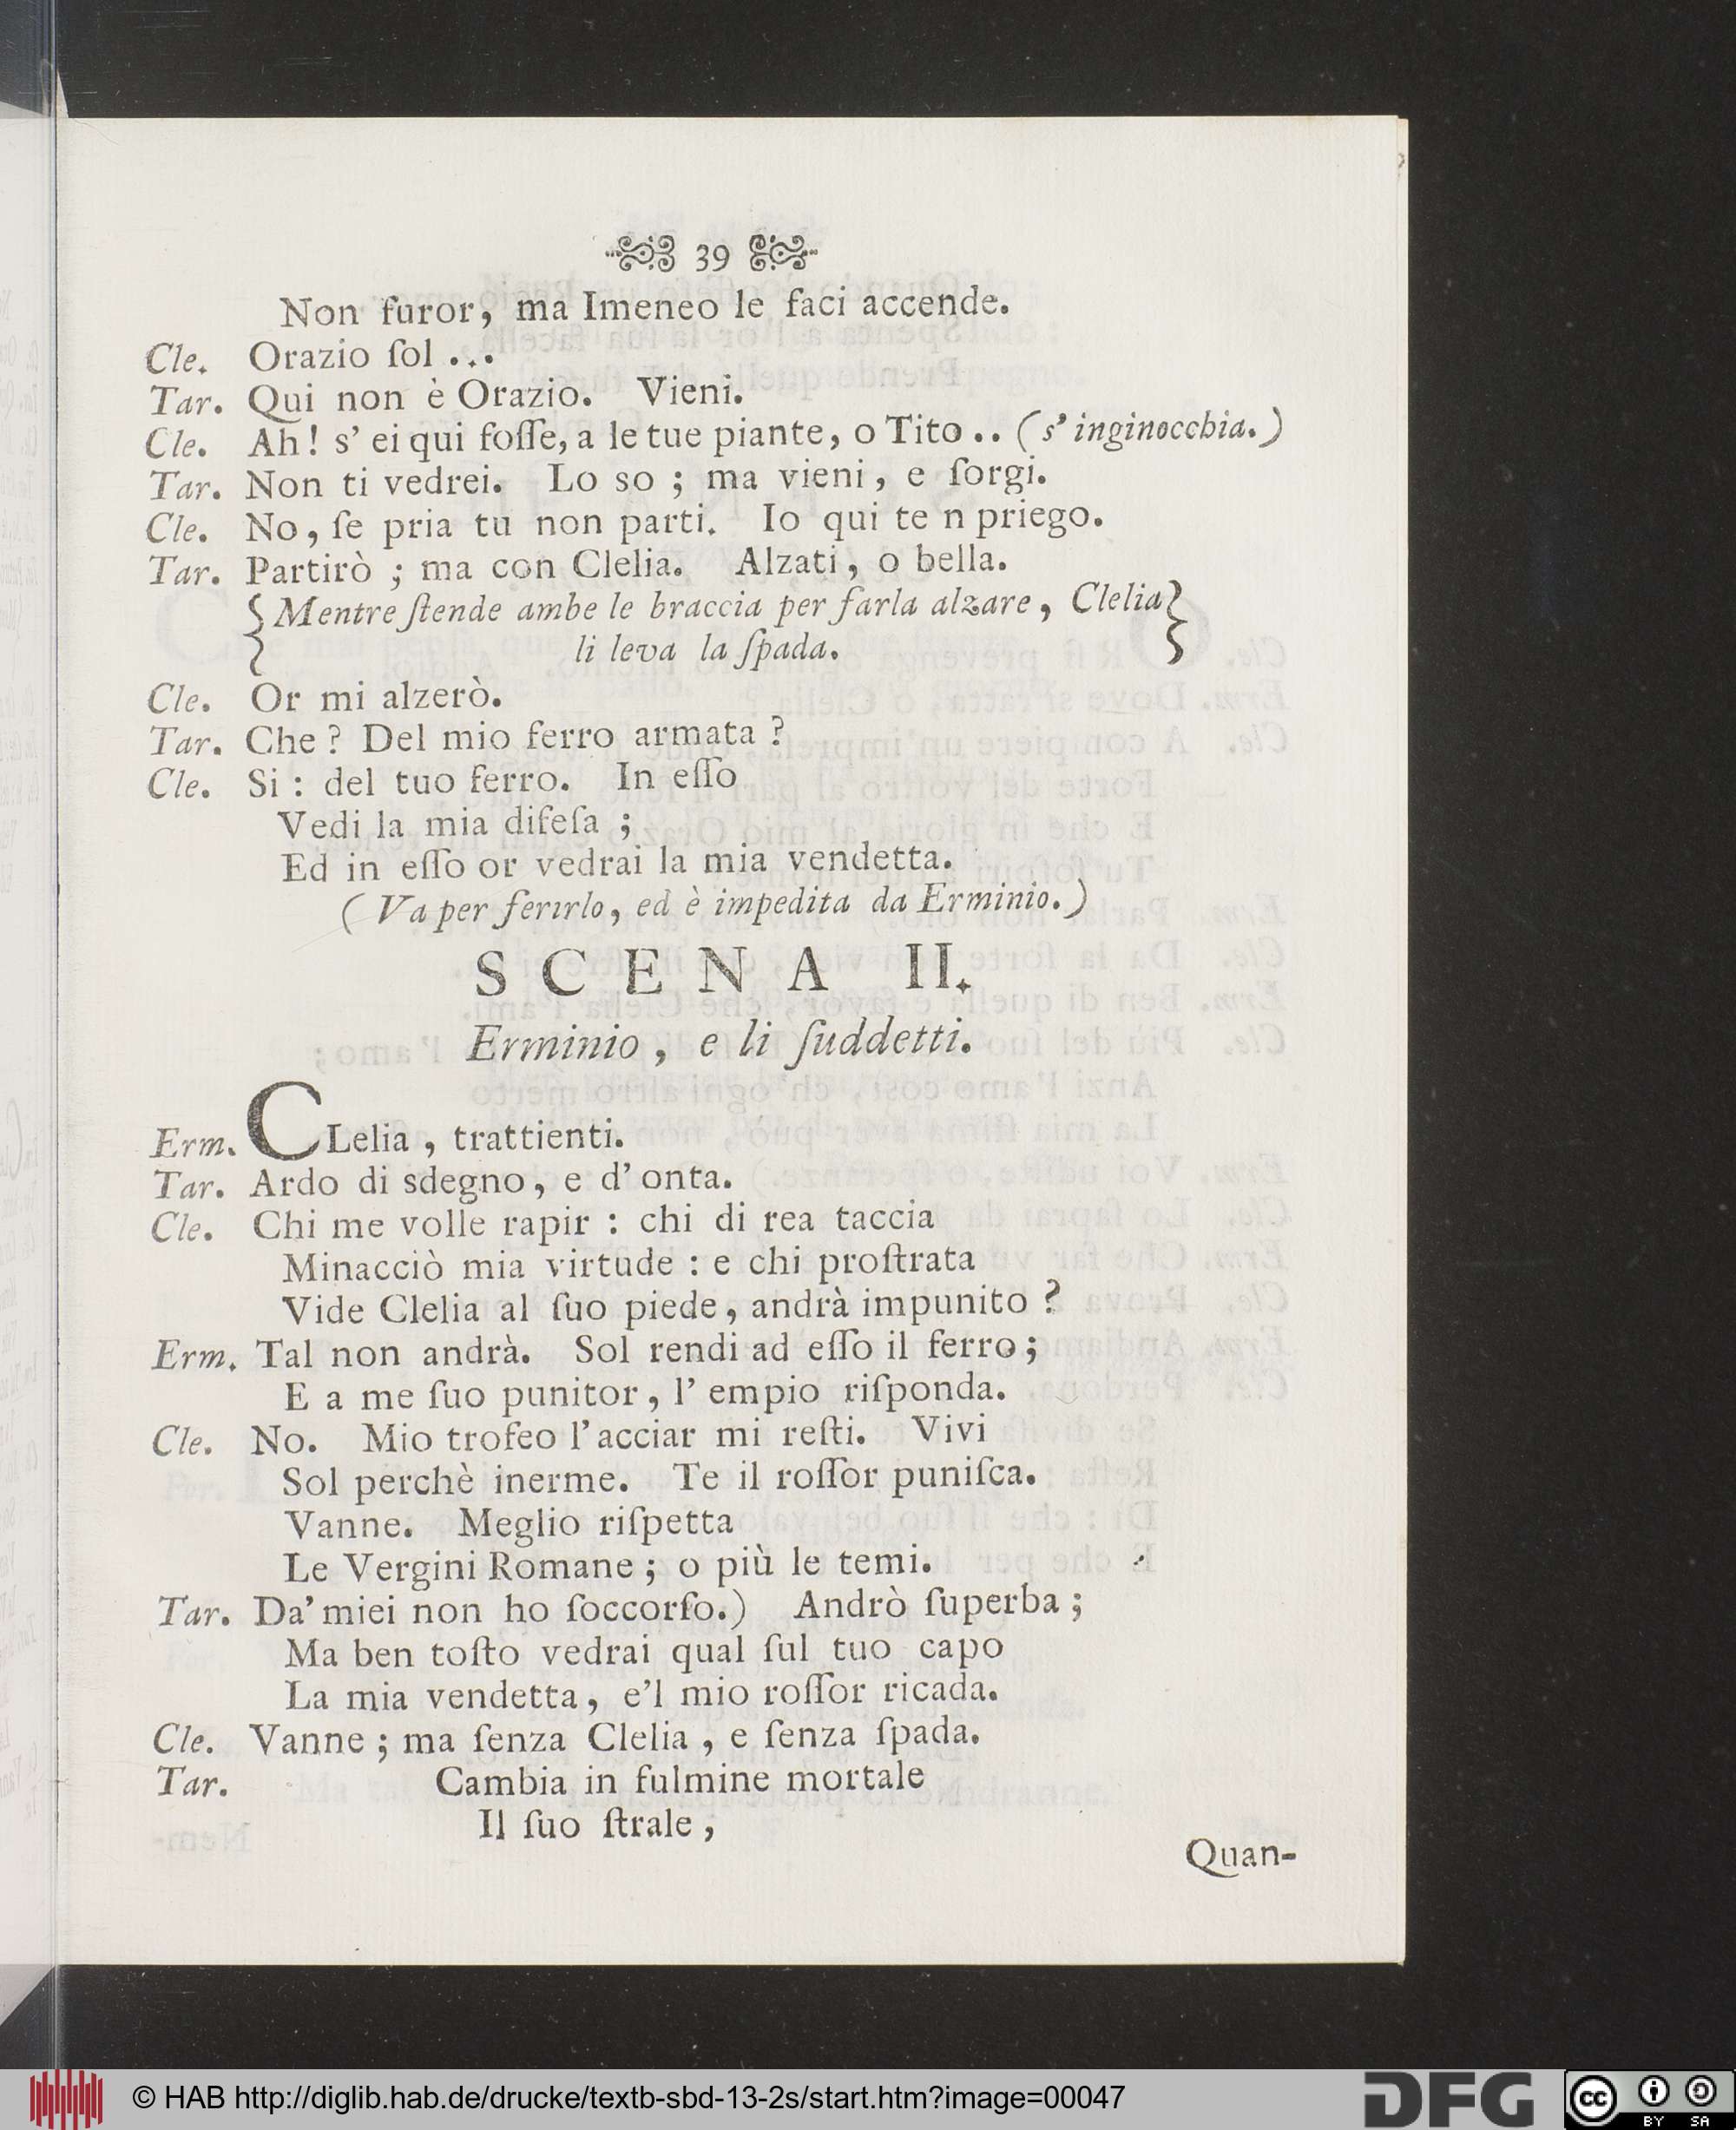 39
Non furor, ma Imeneo le faci accende.
Cle. Orazio ſol ...
Tar. Qui non è Orazio. Vieni.
Cle. Ah! s' ei qui foſſe, a le tue piante, o Tito .. (s' inginocchia.)
Tar. Non ti vedrei. Lo so ; ma vieni, e ſorgi.
Cle. No, ſe pria tu non parti. Io qui te n priego.
Tar. Partirò ; ma con Clelia. Alzati, o bella.
{Mentre ſtende ambe le braccia per farla alzare, Clelia}
li leva la ſpada.
Cle. Or mi alzerò.
Tar. Che? Del mio ferro armata ?
Cle. Si : del tuo ferro. In eſſo
Vedi la mia difeſa ;
Ed in eſſo or vedrai la mia vendetta.
( Va per ferirlo, ed è impedita da Erminio.)
SCENA II.
Erminio, e li ſuddetti.
Erm. CLelia, trattienti.
Tar. Ardo di sdegno, e d' onta.
Cle. Chi me volle rapir : chi di rea taccia
Minacciò mia virtude : e chi proſtrata
Vide Clelia al ſuo piede, andrà impunito ?
Erm. Tal non andrà. Sol rendi ad eſſo il ferro ;
E a me ſuo punitor, l' empio riſponda.
Cle. No. Mio trofeo l'acciar mi reſti. Vivi
Sol perchè inerme. Te il roſſor puniſca.
Vanne. Meglio riſpetta
Le Vergini Romane ; o più le temi.
Tar. Da' miei non ho ſoccorſo.) Andrò ſuperba ;
Ma ben toſto vedrai qual ſul tuo capo
La mia vendetta, e'l mio roſſor ricada.
Cle. Vanne ; ma ſenza Clelia, e ſenza ſpada.
Tar. Cambia in fulmine mortale
Il ſuo ſtrale,
Quan-
© HAB http://diglib.hab.de/drucke/textb-sbd-13-2s/start.htm?image=00047
DFG
cc BY SA